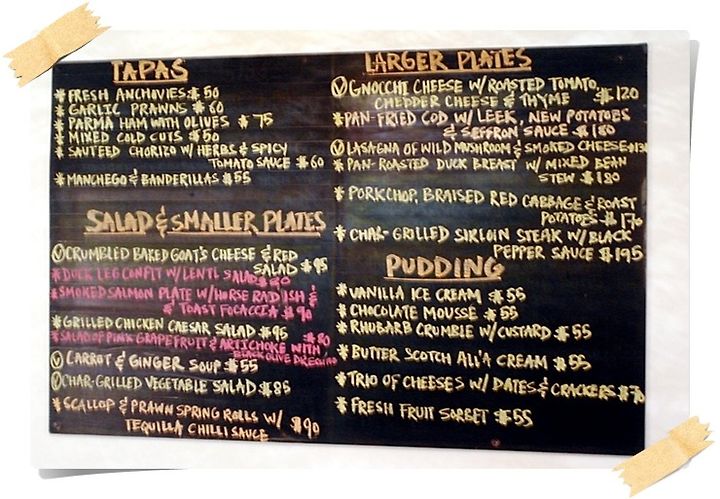 TAPAS
* FRESH ANCHOVIES $ 50
* GARLIC PRAWNS $ 60
* PARMA HAM WITH OLIVES $ 75
* MIXED COLD CUTS $ 50
* SAUTEED CHORIZO W/ HERBS & SPICY
TOMATO SAUCE $ 60
* MANCHEGO & BANDERILLAS $ 55
SALAD & SMALLER PLATES
Ⓥ CRUMBLED BAKED GOAT'S CHEESE & RED
SALAD $ 95
* DUCK LEG CONFIT W/ LENTL SALAD $ 80
* SMOKED SALMON PLATE W/ HORSE RADISH &
TOAST FOCACCIA $ 90
* GRILLED CHICKEN CAESAR SALAD $ 95
* SALAD OF PINK GRAPEFRUIT & ARTICHOKE WITH $ 80
BLACK OLIVE
Ⓥ CARROT & GINGER SOUP $ 55
Ⓥ CHAR-GRILLED VEGETABLE SALAD $ 85
* SCALLOP & PRAWN SPRING ROLLS W/ $ 90
TEQUILLA CHILLI SAUCE
LARGER PLATES
Ⓥ GNOCCHI CHEESE W/ ROASTED TOMATO,
CHEDDER CHEESE & THYME $ 120
* PAN-FRIED COD W/ LEEK, NEW POTATOES
& SEFFRON SAUCE $ 180
Ⓥ LASAGNA OF WILD MUSHROOM & SMOKED CHEESE
* PAN-ROASTED DUCK BREAST W/ MIXED BEAN
STEW $ 180
* PORKCHOP, BRAISED RED CABBAGE & ROAST
POTATOES $ 170
* CHAR-GRILLED SIRLOIN STEAK W/ BLACK
PEPPER SAUCE $ 195
PUDDING
* VANILLA ICE CREAM $ 55
* CHOCOLATE MOUSSE $ 55
* RHUBARB CRUMBLE W/ CUSTARD $ 55
* BUTTER SCOTCH ALL'A CREAM $ 55
* TRIO OF CHEESES W/ DATES & CRACKERS $ 70
* FRESH FRUIT SORBET $ 55